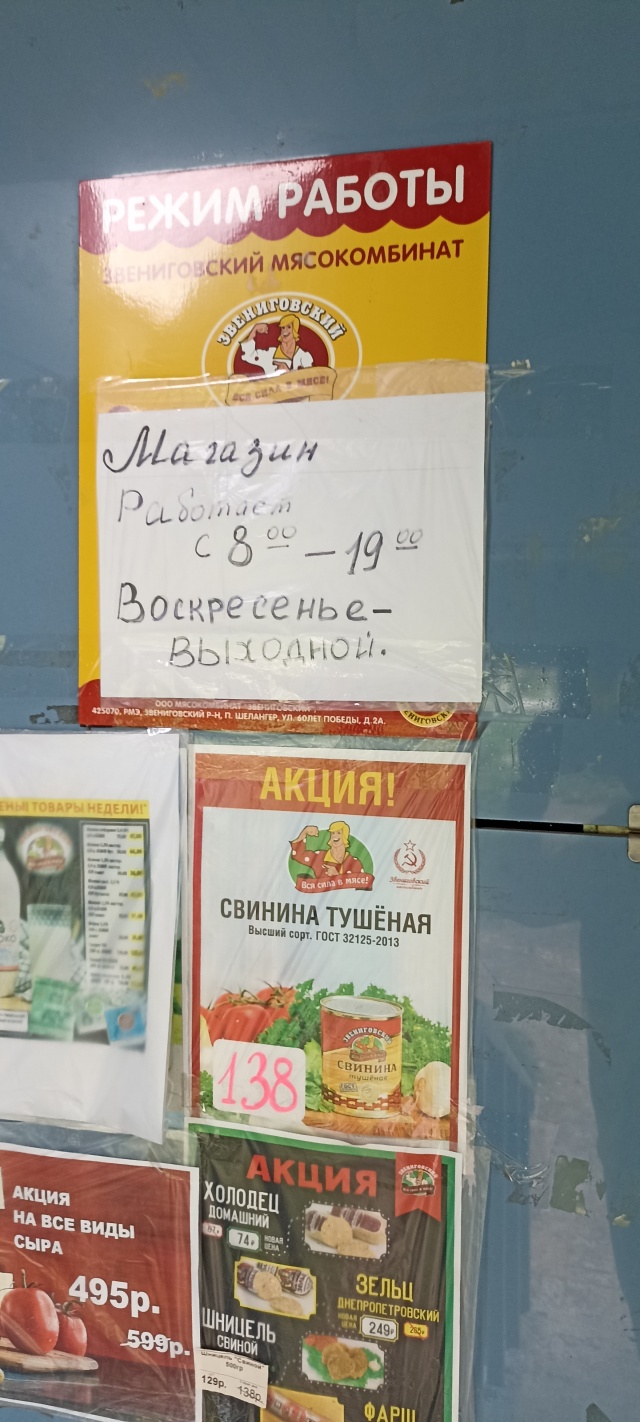 РЕЖИМ РАБОТЫ
ЗВЕНИГОВСКИЙ МЯСОКОМБИНАТ
ЗВЕНИГОВСКИЙ
ВСЯ СИЛА В МЯСЕ!
Магазин
Работает
с 8 00 – 19 00
Воскресенье –
выходной.
ООО МЯСОКОМБИНАТ "ЗВЕНИГОВСКИЙ",
425070, РМЭ, ЗВЕНИГОВСКИЙ Р-Н, П. ШЕЛАНГЕР, УЛ. 60ЛЕТ ПОБЕДЫ, Д.2А.
ТОВАРЫ НЕДЕЛИ!
АКЦИЯ!
Вся сила в мясе!
Звениговский
СВИНИНА ТУШЁНАЯ
Высший сорт. ГОСТ 32125-2013
ЗВЕНИГОВСКИЙ
СВИНИНА
тушёная
138
АКЦИЯ
НА ВСЕ ВИДЫ
СЫРА
495р.
599р.
АКЦИЯ
ХОЛОДЕЦ
ДОМАШНИЙ
74₽
НОВАЯ ЦЕНА
ЗЕЛЬЦ
ДНЕПРОПЕТРОВСКИЙ
НОВАЯ ЦЕНА
249₽
ШНИЦЕЛЬ
СВИНОЙ
Шницель "Свиной"
500гр
129р. 138р.
ФАРШ